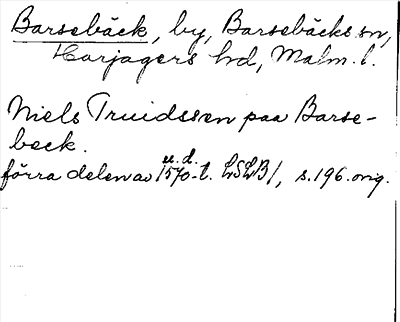 Barsebäck, by, Barsebäcks sn,
Harjagers hd, Malm. l.
Niels Truidssen paa Barse-
beck.
u. d.
förra delen av 1570-t. LSLB/, s. 196. orig.